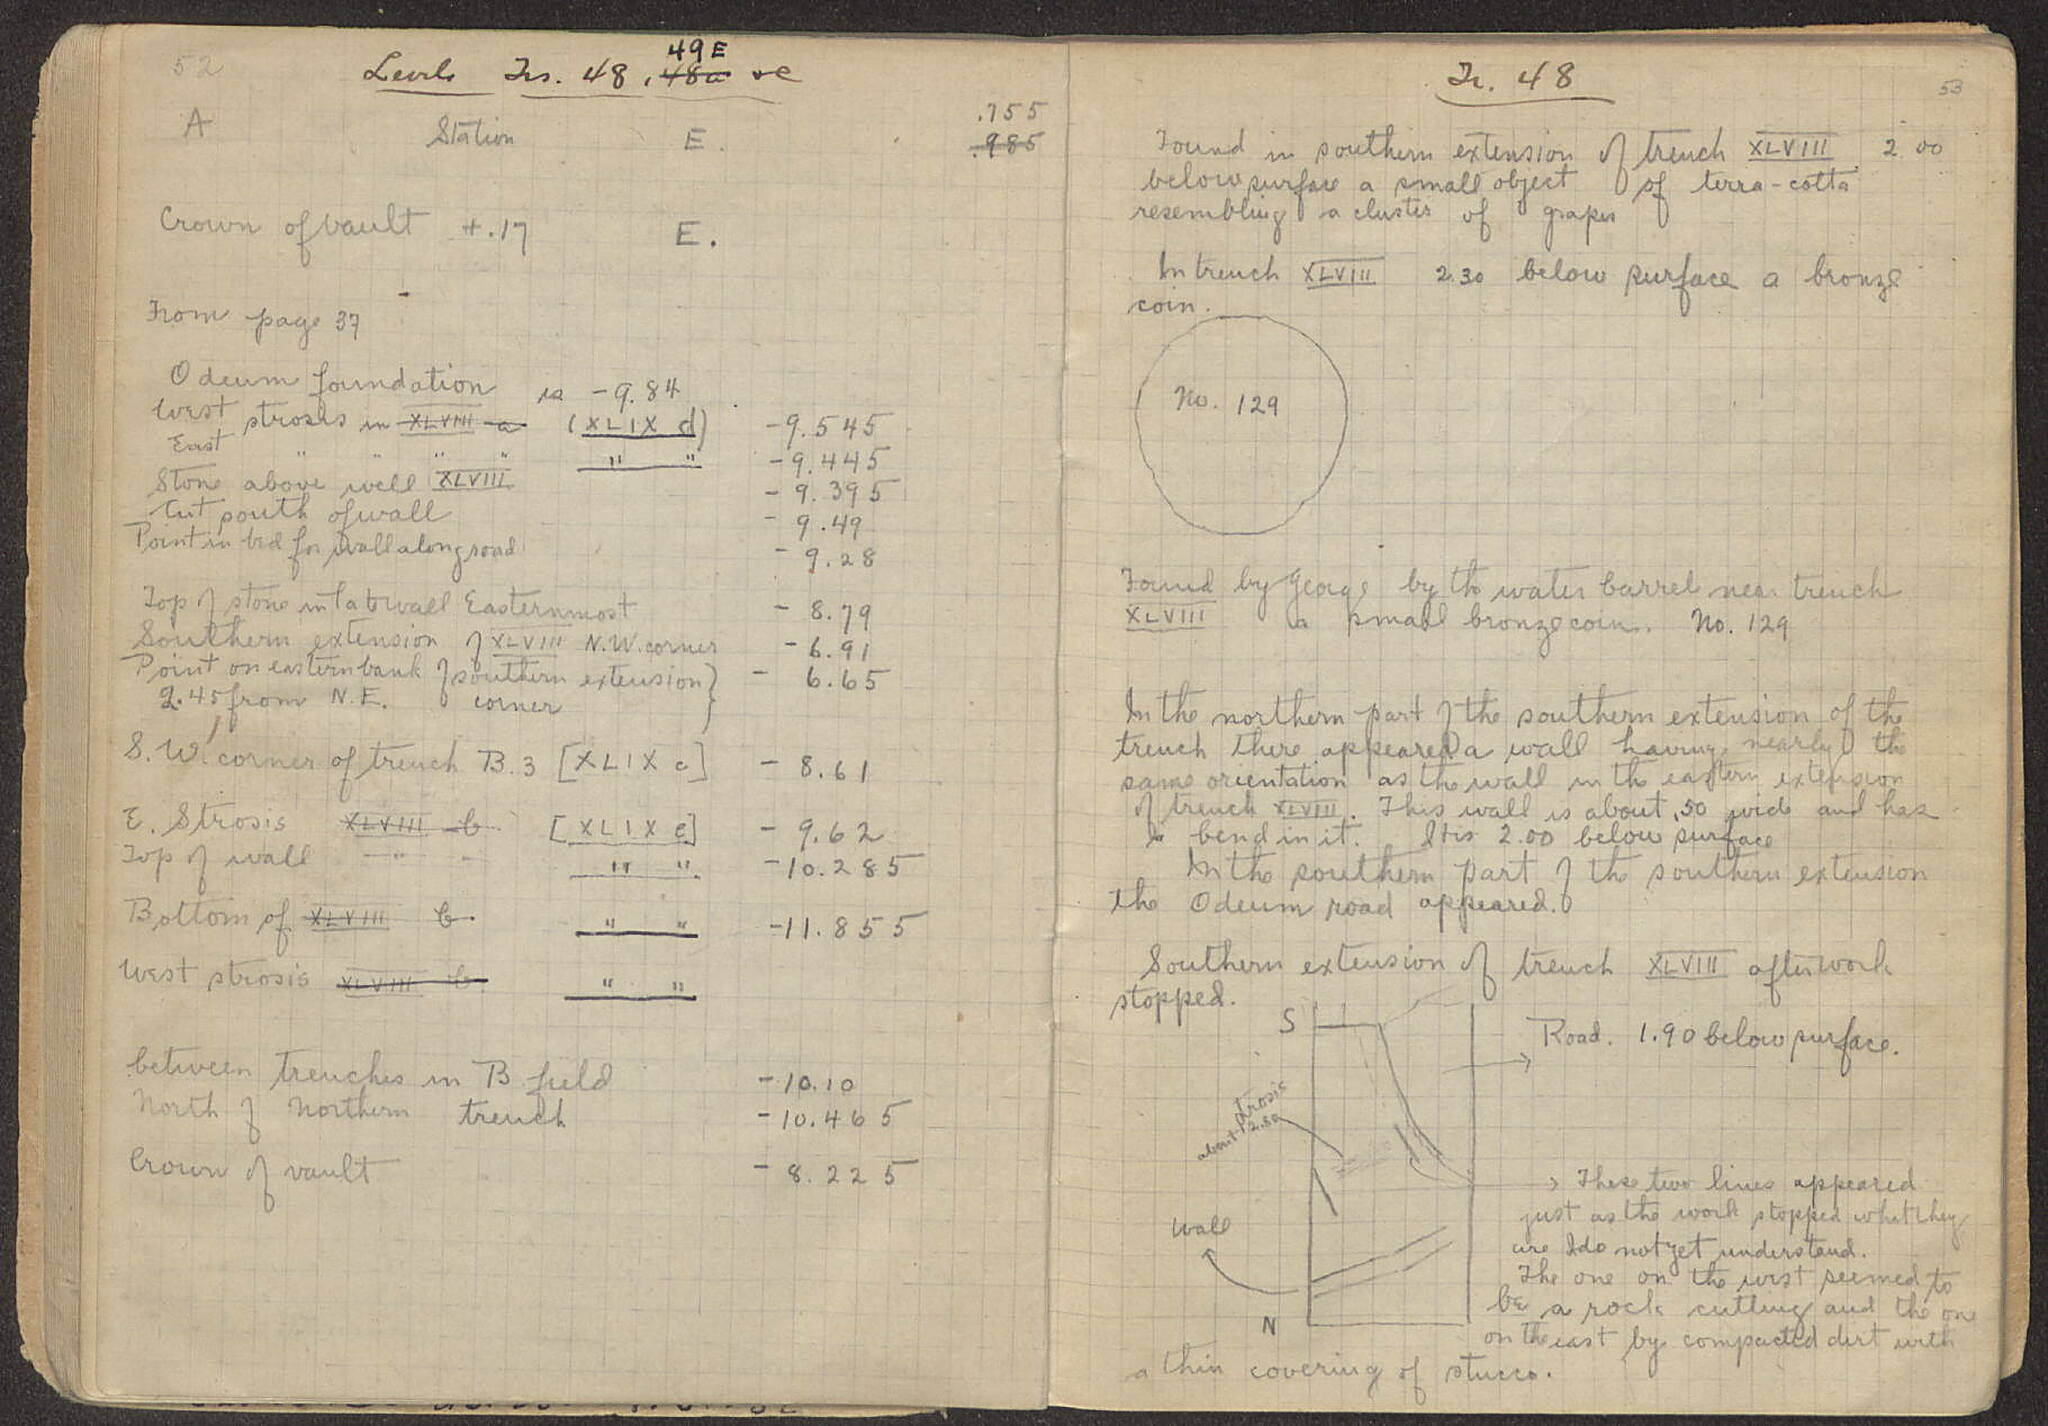 52
Levels Trs. 48, 49E 48a + c
A Station E. .755
.985
Crown of vault +.17 E.
From page 37
Odeum foundation is -9.84
West strosis in XLVIII a (XLIX d) -9.545
East " " " " " " -9.445
Stone above well XLVIII -9.395
Cut south of wall -9.49
Point in bed for wall along road -9.28
Top of stone in late wall Easternmost -8.79
Southern extension of XLVIII N.W. corner -6.91
Point on eastern bank of southern extension } -6.65
2.45 from N.E. corner
S.W. corner of trench B.3 [XLIX c] -8.61
E. Strosis XLVIII b [XLIX e] -9.62
Top of wall " " " " -10.285
Bottom of XLVIII b. " " -11.855
West strosis XLVIII b. " "
between trenches in B field -10.10
North of Northern trench -10.465
Crown of vault -8.225
Tr. 48
53
Found in southern extension of trench XLVIII 2.00
below surface a small object of terra-cotta
resembling a cluster of grapes
In trench XLVIII 2.30 below surface a bronze
coin.
No. 129
Found by George by the water barrel near trench
XLVIII a small bronze coin. No. 129
In the northern part of the southern extension of the
trench there appeared a wall having nearly the
same orientation as the wall in the eastern extension
of trench XLVIII. This wall is about .50 wide and has
a bend in it. It is 2.00 below surface
In the southern part of the southern extension
the Odeum road appeared.
Southern extension of trench XLVIII after work
stopped.
S
Road. 1.90 below surface.
strosis
about 2.50
These two lines appeared
just as the work stopped what they
are I do not yet understand.
Wall
The one on the west seemed to
be a rock cutting and the one
N
on the east by compacted dirt with
a thin covering of stucco.